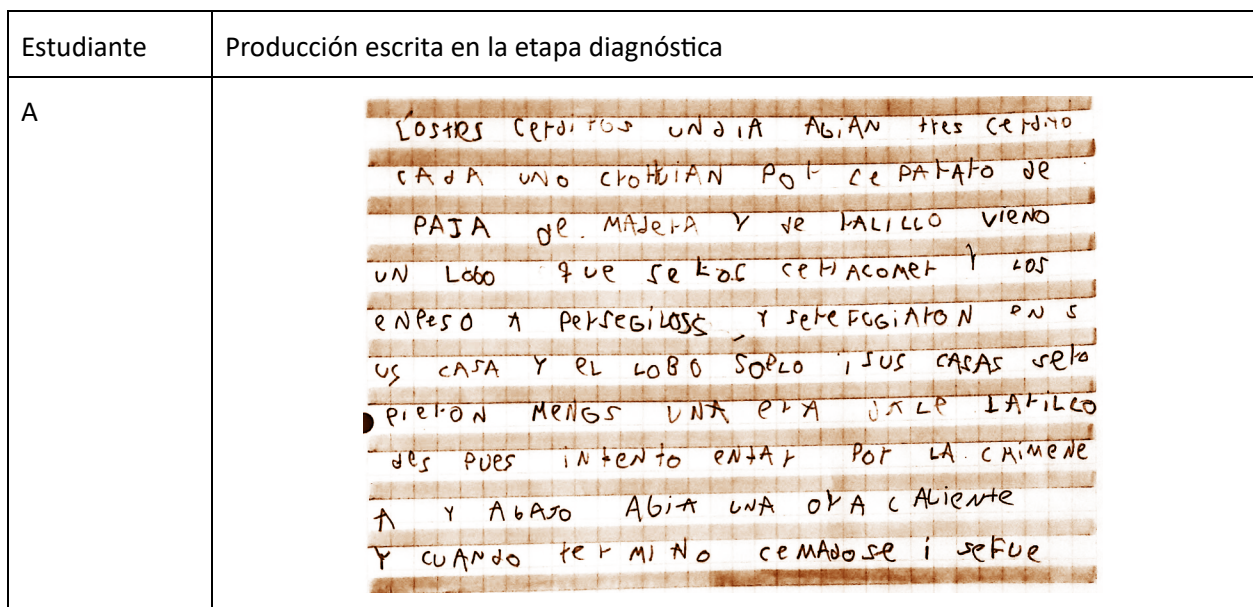 Estudiante
Producción escrita en la etapa diagnóstica
A
Lostres cerditos un dia Abian tres cerdito
cAdA uno crottuian Por ce parato de
PAJA de. MAderA Y de lALiLLO vieno
un Lobo que se cerracomer Y Los
enpeso A persegiloss, Y serefugiaron en s
us cAsA Y eL LOBO SopLo i sus cAsAs sero
pieron Menos unA erA LAriLLo
des pues intento entar por LA chimene
A Y AbAJO AbiA unA oyA cALiente
Y cuAndo ter mi no cemAdose i seFue